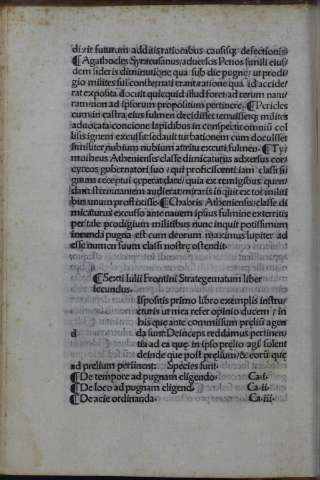 dixit futurum additis rationibus causisque defectionis
¶ Agathocles Syracusanus adversos Penos simili eius
dem sideris diminutione qua sub die pugne ut prodi
gio milites sui consternati erant ratione qua id accide/
rat exposita docuit quicquid illud foret ad rerum natu/
ram non ad ipsorum propositum pertinere. ¶ Pericles
cum in castra eius fulmen decidisset terruissetque milites
advocata concione lapidibus in conspectu omnium col
lisis ignem excussit sedavit turbationem cum docuisset
similiter nubium nubium attritu excuti fulmen. ¶ Ty
motheus Atheniensis classe dimicaturus adversus cor
cyreos gubernatori suo qui proficiscenti iam classi si
gnum receptui ceperat dare quia ex remigibus quen
dam sternutantem audierat miraris inquit ex tot mili
bus unum profrixisse. ¶ Chabrias Atheniensis classe di
micaturus excusso ante navem ipsius fulmine exterritis
per tale prodigium militibus nunc inquit potissimum
ineunda pugna est cum deorum maximus Iupiter ad
esse numen suum classi nostre ostendit
¶ Sexti Iulii Frontini Strategematum liber
secundus.
d
ispositis primo libro exemplis instru
cturis ut mea refert opinio ducem / in
his que ante commissum prelium agen
da sunt Deinceps reddamus pertinen
tia ad ea que in ipso prelio agi solent
deinde que post prelium / & eorum que
ad prelium pertinent Species sunt.
¶ De tempore ad pugnam eligendo. Ca.i.
¶ De loco ad pugnam eligend. Ca.ii.
¶ De acie ordinanda. Ca.iii.